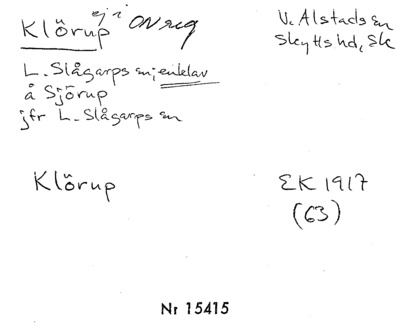 Klörup ej i ONreg
V. Alstads sn
Skytts hd, Sk
L. Slågarps sn; enklav
å Sjörup
jfr L. Slågarps sn
Klörup
EK 1917
(63)
Nr 15415